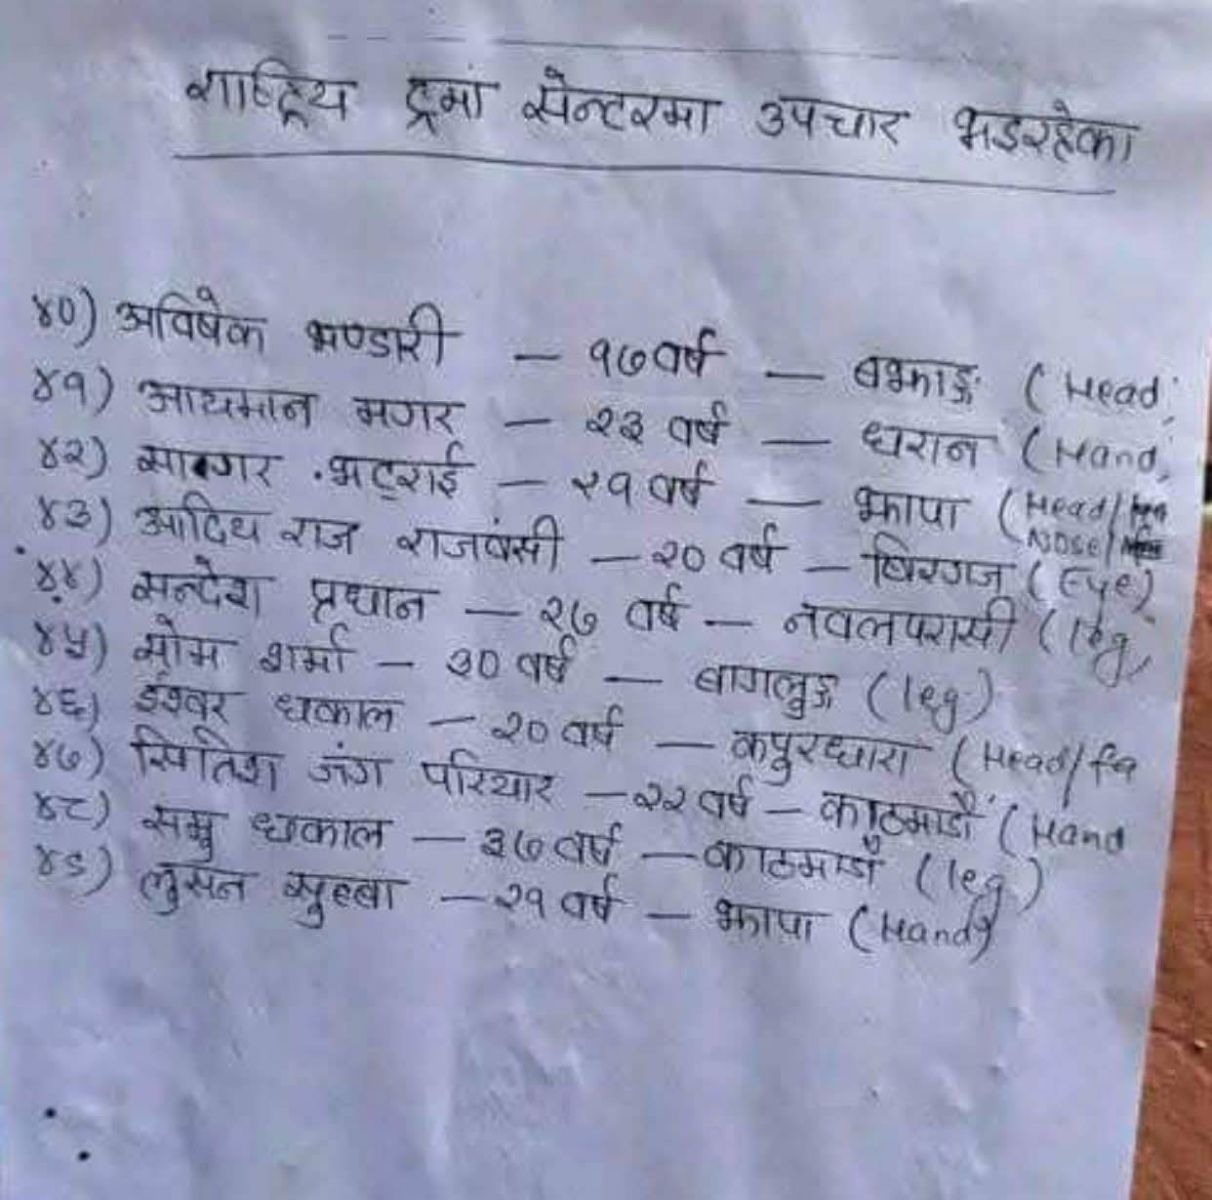 राष्ट्रिय ट्रमा सेन्टरमा उपचार भइरहेका
४०) अविषेक भण्डारी - १७ वर्ष - बझाङ (Head,
४१) आयमान मगर - २३ वर्ष - धरान (Hand,
४२) सागर भट्टराई - २१ वर्ष - झापा (Head/
Nose/
४३) आदिय राज राजवंसी - २० वर्ष - बिरगंज (Eye)
४४) सन्देश प्रधान - २७ वर्ष - नवलपरासी (leg,
४५) सोम शर्मा - ३० वर्ष - बागलुङ (leg)
४६) ईश्वर धकाल - २० वर्ष - कपुरधारा (Head/fa
४७) सितिश जंग परियार - २२ वर्ष - काठमाडौं (Hand
४८) सम्बु धकाल - ३७ वर्ष - काठमाडौं (leg)
४९) लुसन सुहबा - २१ वर्ष - झापा (Hand)